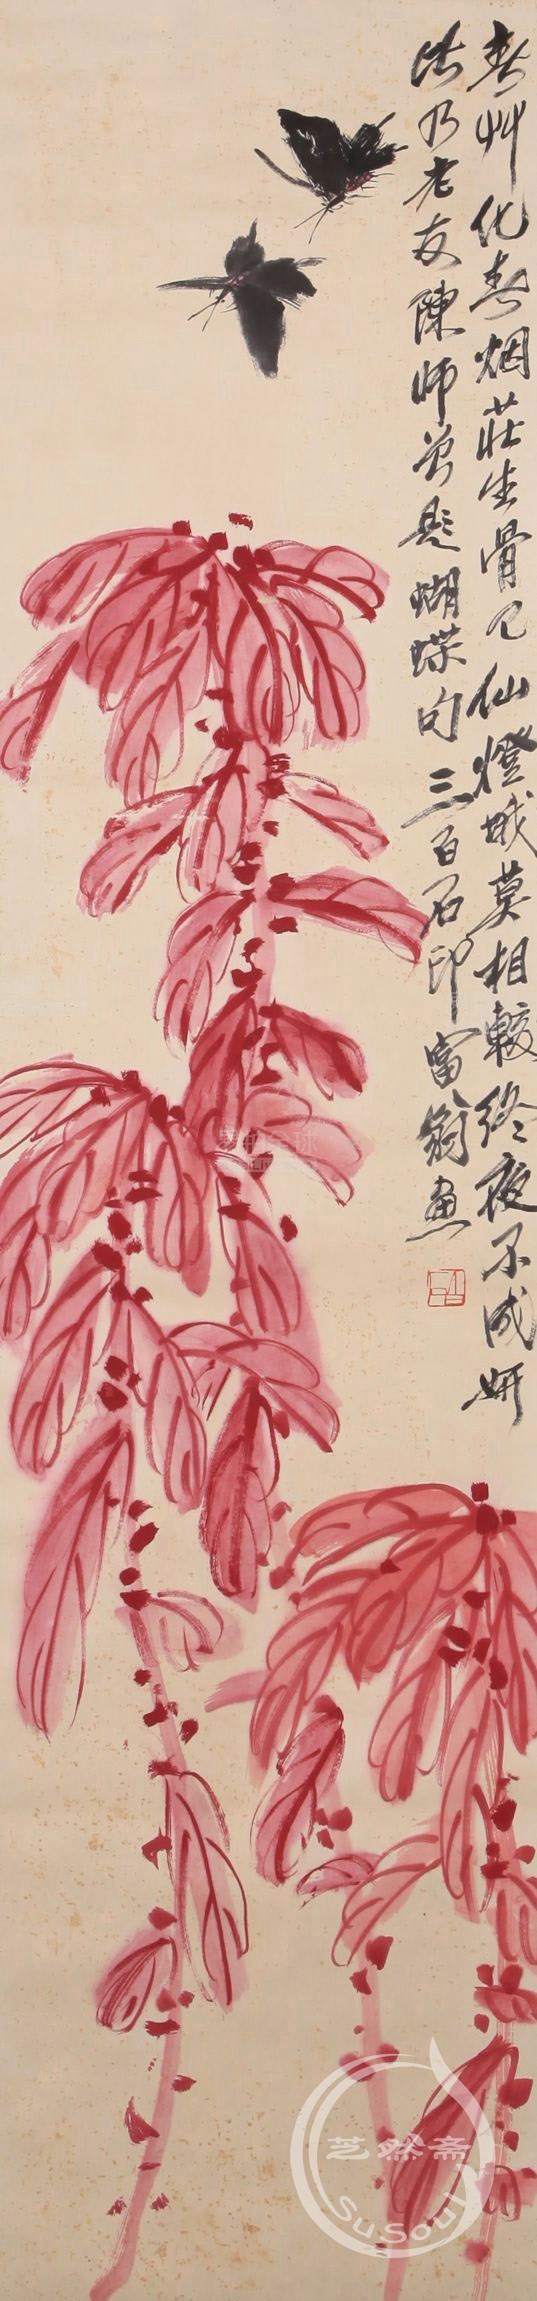 春艸化春烟莊生骨已仙燈蛾莫相較終夜不成妍
此乃老友陳師曾題蝴蝶句三百石印富翁畫
芝然斋
SuSoul